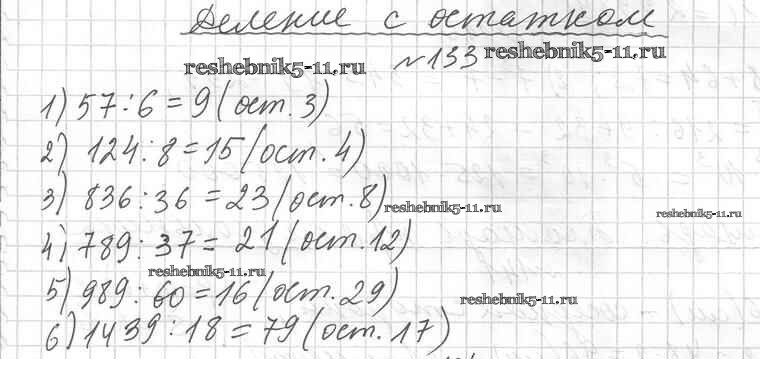 Деление с остатком
reshebnik5-11.ru №133 reshebnik5-11.ru
1) 57:6=9 (ост. 3)
2) 124:8=15 (ост. 4)
3) 836:36=23 (ост. 8) reshebnik5-11.ru reshebnik5-11.ru
4) 789:37=21 (ост. 12)
reshebnik5-11.ru
5) 989:60=16 (ост. 29) reshebnik5-11.ru
6) 1439:18=79 (ост. 17)